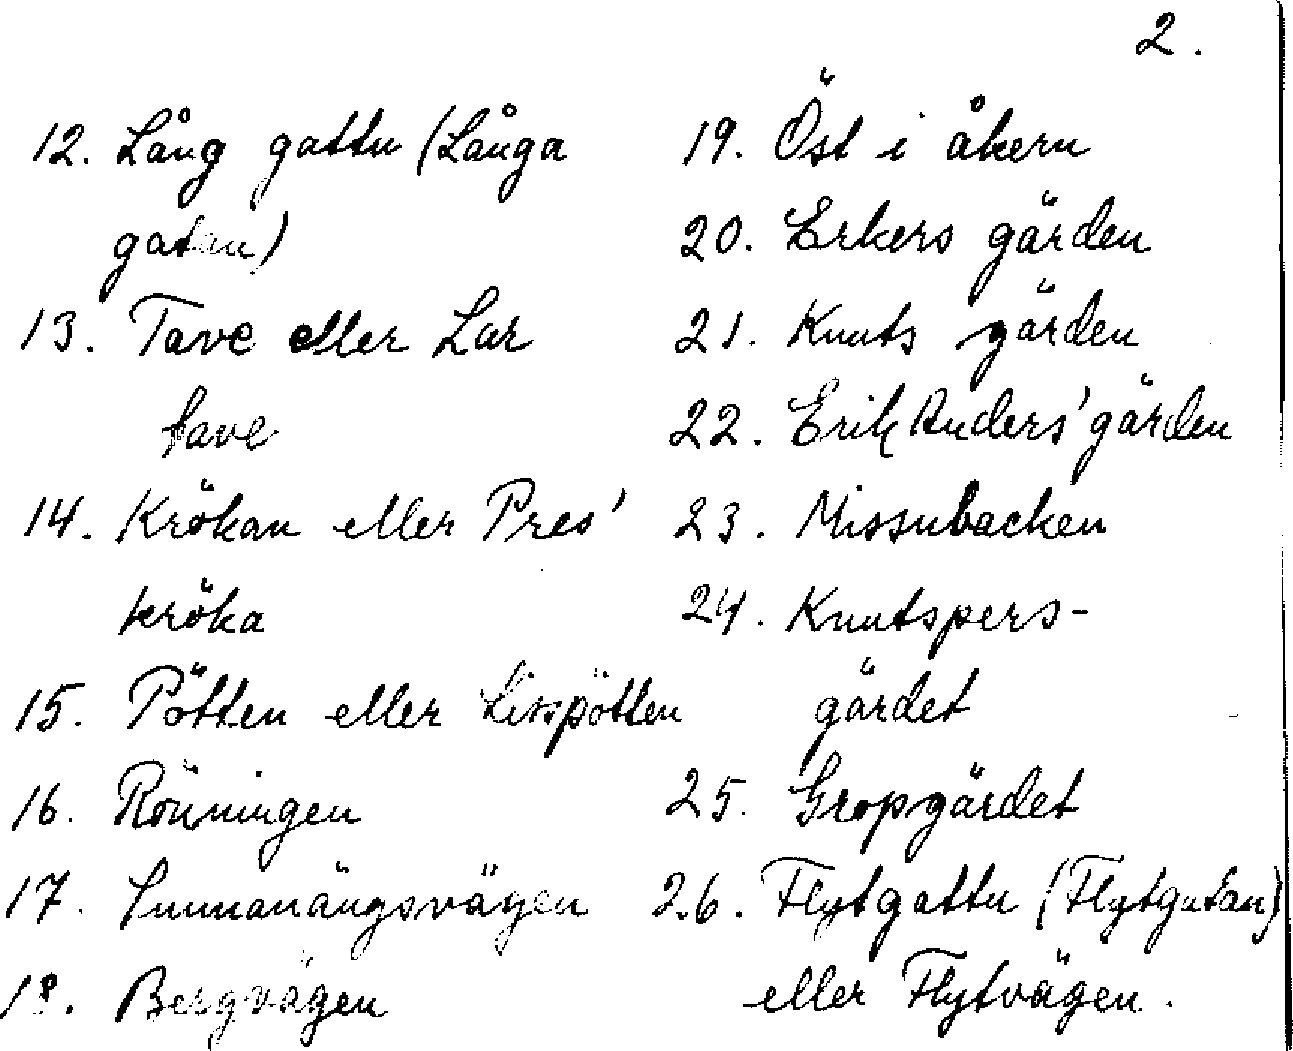 2.
12. Lång gattu (Långa
gatan)
13. Tave eller Lar
tave
14. Krökan eller Pres'
kröka
15. Pötten eller Lisspötten
16. Rönningen
17. Sunnanängsvägen
18. Bergvägen
19. Öst i åkern
20. Erkers gärden
21. Knuts gärden
22. Erik Anders' gärden
23. Missubacken
24. Knutspers-
gärdet
25. Gropgärdet
26. Flytgattu (Flytgatan)
eller Flytvägen.